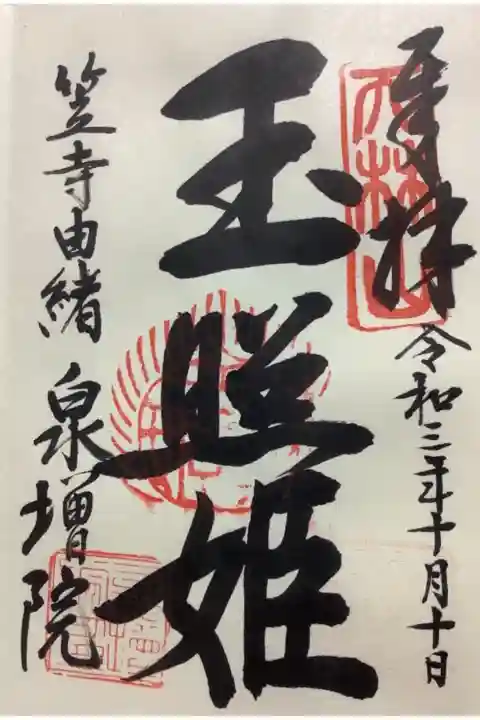 奉拝
令和三年十月十日
玉照姫
笠寺由緒 泉増院